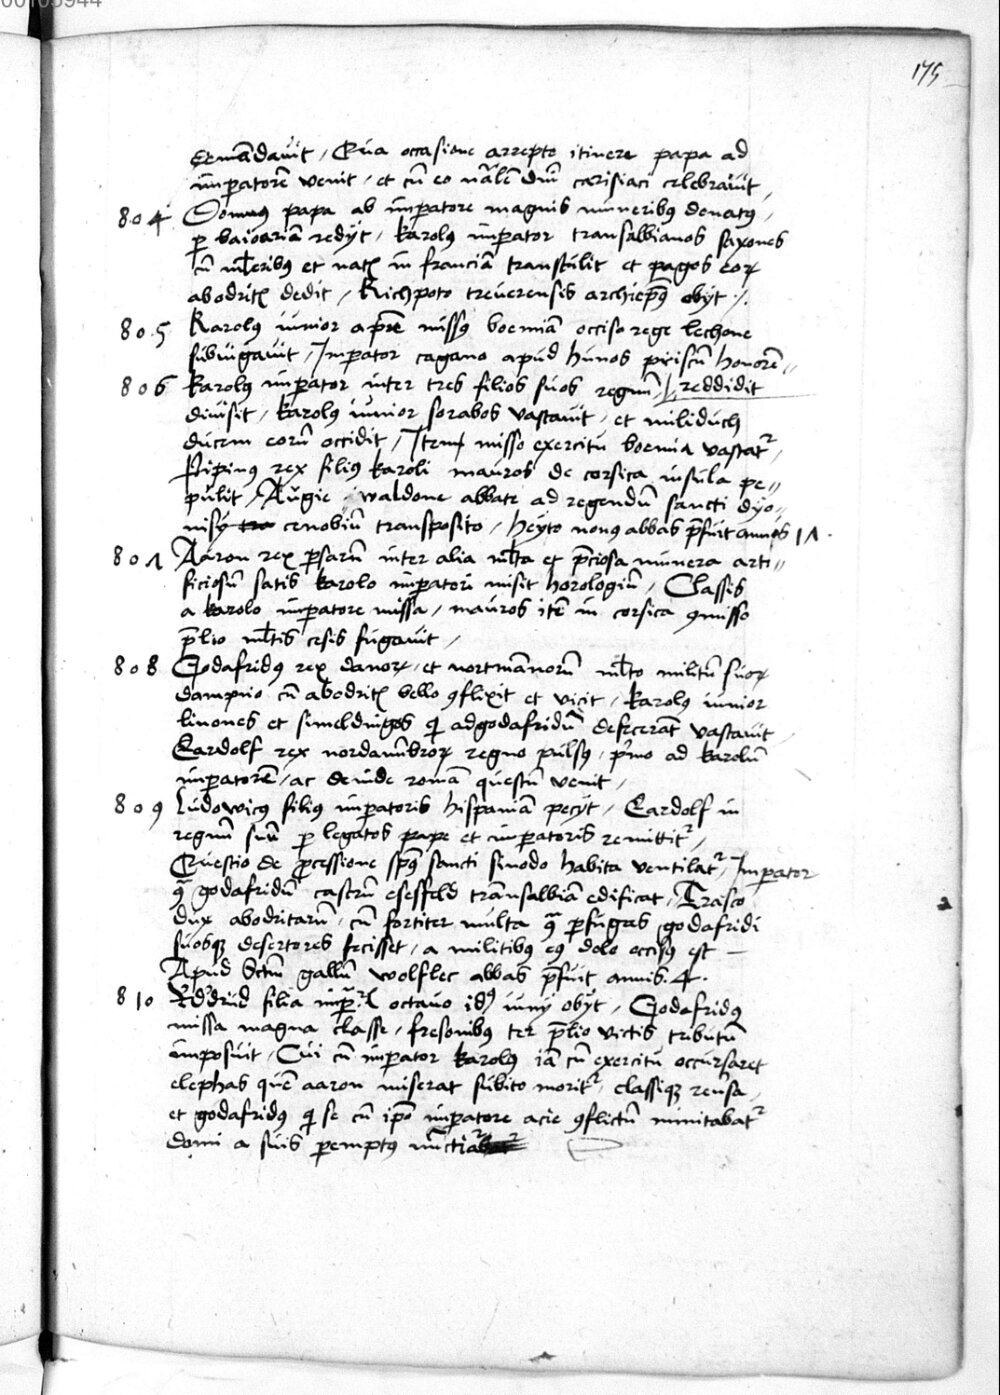 00105944
175
comēdavit / Qua occasione arrepto itinere papa ad
imperatorē venit / et cū eo nr̄alē dnī carisiaci celebravit /
804 Domnus papa ab imperatore magnis muneribꝰ donatꝰ /
ꝑ baioariā redyt / karolꝰ imperator transalbianos saxones
cū ml̄eribꝰ et natꝭ in franciā transtulit et pagos eoꝝ
abodritꝭ dedit / Richpoto treverensis archiep̄ꝰ obyt /.
805 Karolꝰ iunior a pr̄e missꝰ boemiā occiso rege lechone
subiugavit / Imperator cagano apud hunos priscū honorē //
806 karolꝰ imperator inter tres filios suos regnū / reddidit
divisit / karolꝰ iunior sorabos vastavit / et miliduch
ducem eorū occidit / Item misso exercitu boemia vastatᷣ /
Pipinus rex filius karoli mauros de corsica insula pe//
pulit / Augie waldone abbate ad regendū sancti dyo//
nisy cenobiū transposito / heyto nonꝰ abbas p̄fuit annos 17.
807 Aaron rex ꝑsarū inter alia ml̄ta et p̄ciosa munera arti//
ficiosū satis karolo imperatori misit horologiū / Classis
a karolo imperatore missa / mauros itē in corsica ꝯmisso
p̄lio ml̄tis cesis fugavit /
808 Godafridꝰ rex danoꝝ / et nortmānorū ml̄to militū suoꝝ
dampno cū abodritꝭ bello ꝯflixit et vicit / karolꝰ iunior
linones et simeldingos qͥ ad godafridū defecerāt vastavit /
Eardolf rex nordanūbroꝝ regno pulsꝰ / pͥmo ad karolū
imperatorē / ac deinde romā questū venit /
809 Ludowicꝰ filiꝰ imperatoris hispaniā petyt / Eardolf in
regnū suū ꝑ legatos pape et imperatoris remittitᷣ /
Questio de ꝓcessione sp̄ꝰ sancti sinodo habita ventilatᷣ / Imperator
ꝯᵃ godafridū castrū esesfeld transalbiā edificat / Trasco
dux abodritarū / cū fortiter multa ꝯᵃ ꝑfugas godafridi
suosqꝫ desertores fecisset / a militibꝰ eꝰ dolo occisꝰ est —
Apud Sctm̄ gallū wolflec abbas p̄fuit annis 4.
810 filia imp̄. octavo idꝰ iuny obyt / Godafridꝰ
missa magna classe / fresonibꝰ ter p̄lio victis tributū
imposuit / Cui cū imperator karolꝰ iā cū exercitu occursaret
elephas quē aaron miserat subito moritᷣ / classiqꝫ rensa /
et godafridꝰ qͥ se cū ip̄o imperatore acie ꝯflictū minitabatᷣ
domi a suis ꝑemptꝰ nūctiatᷣ